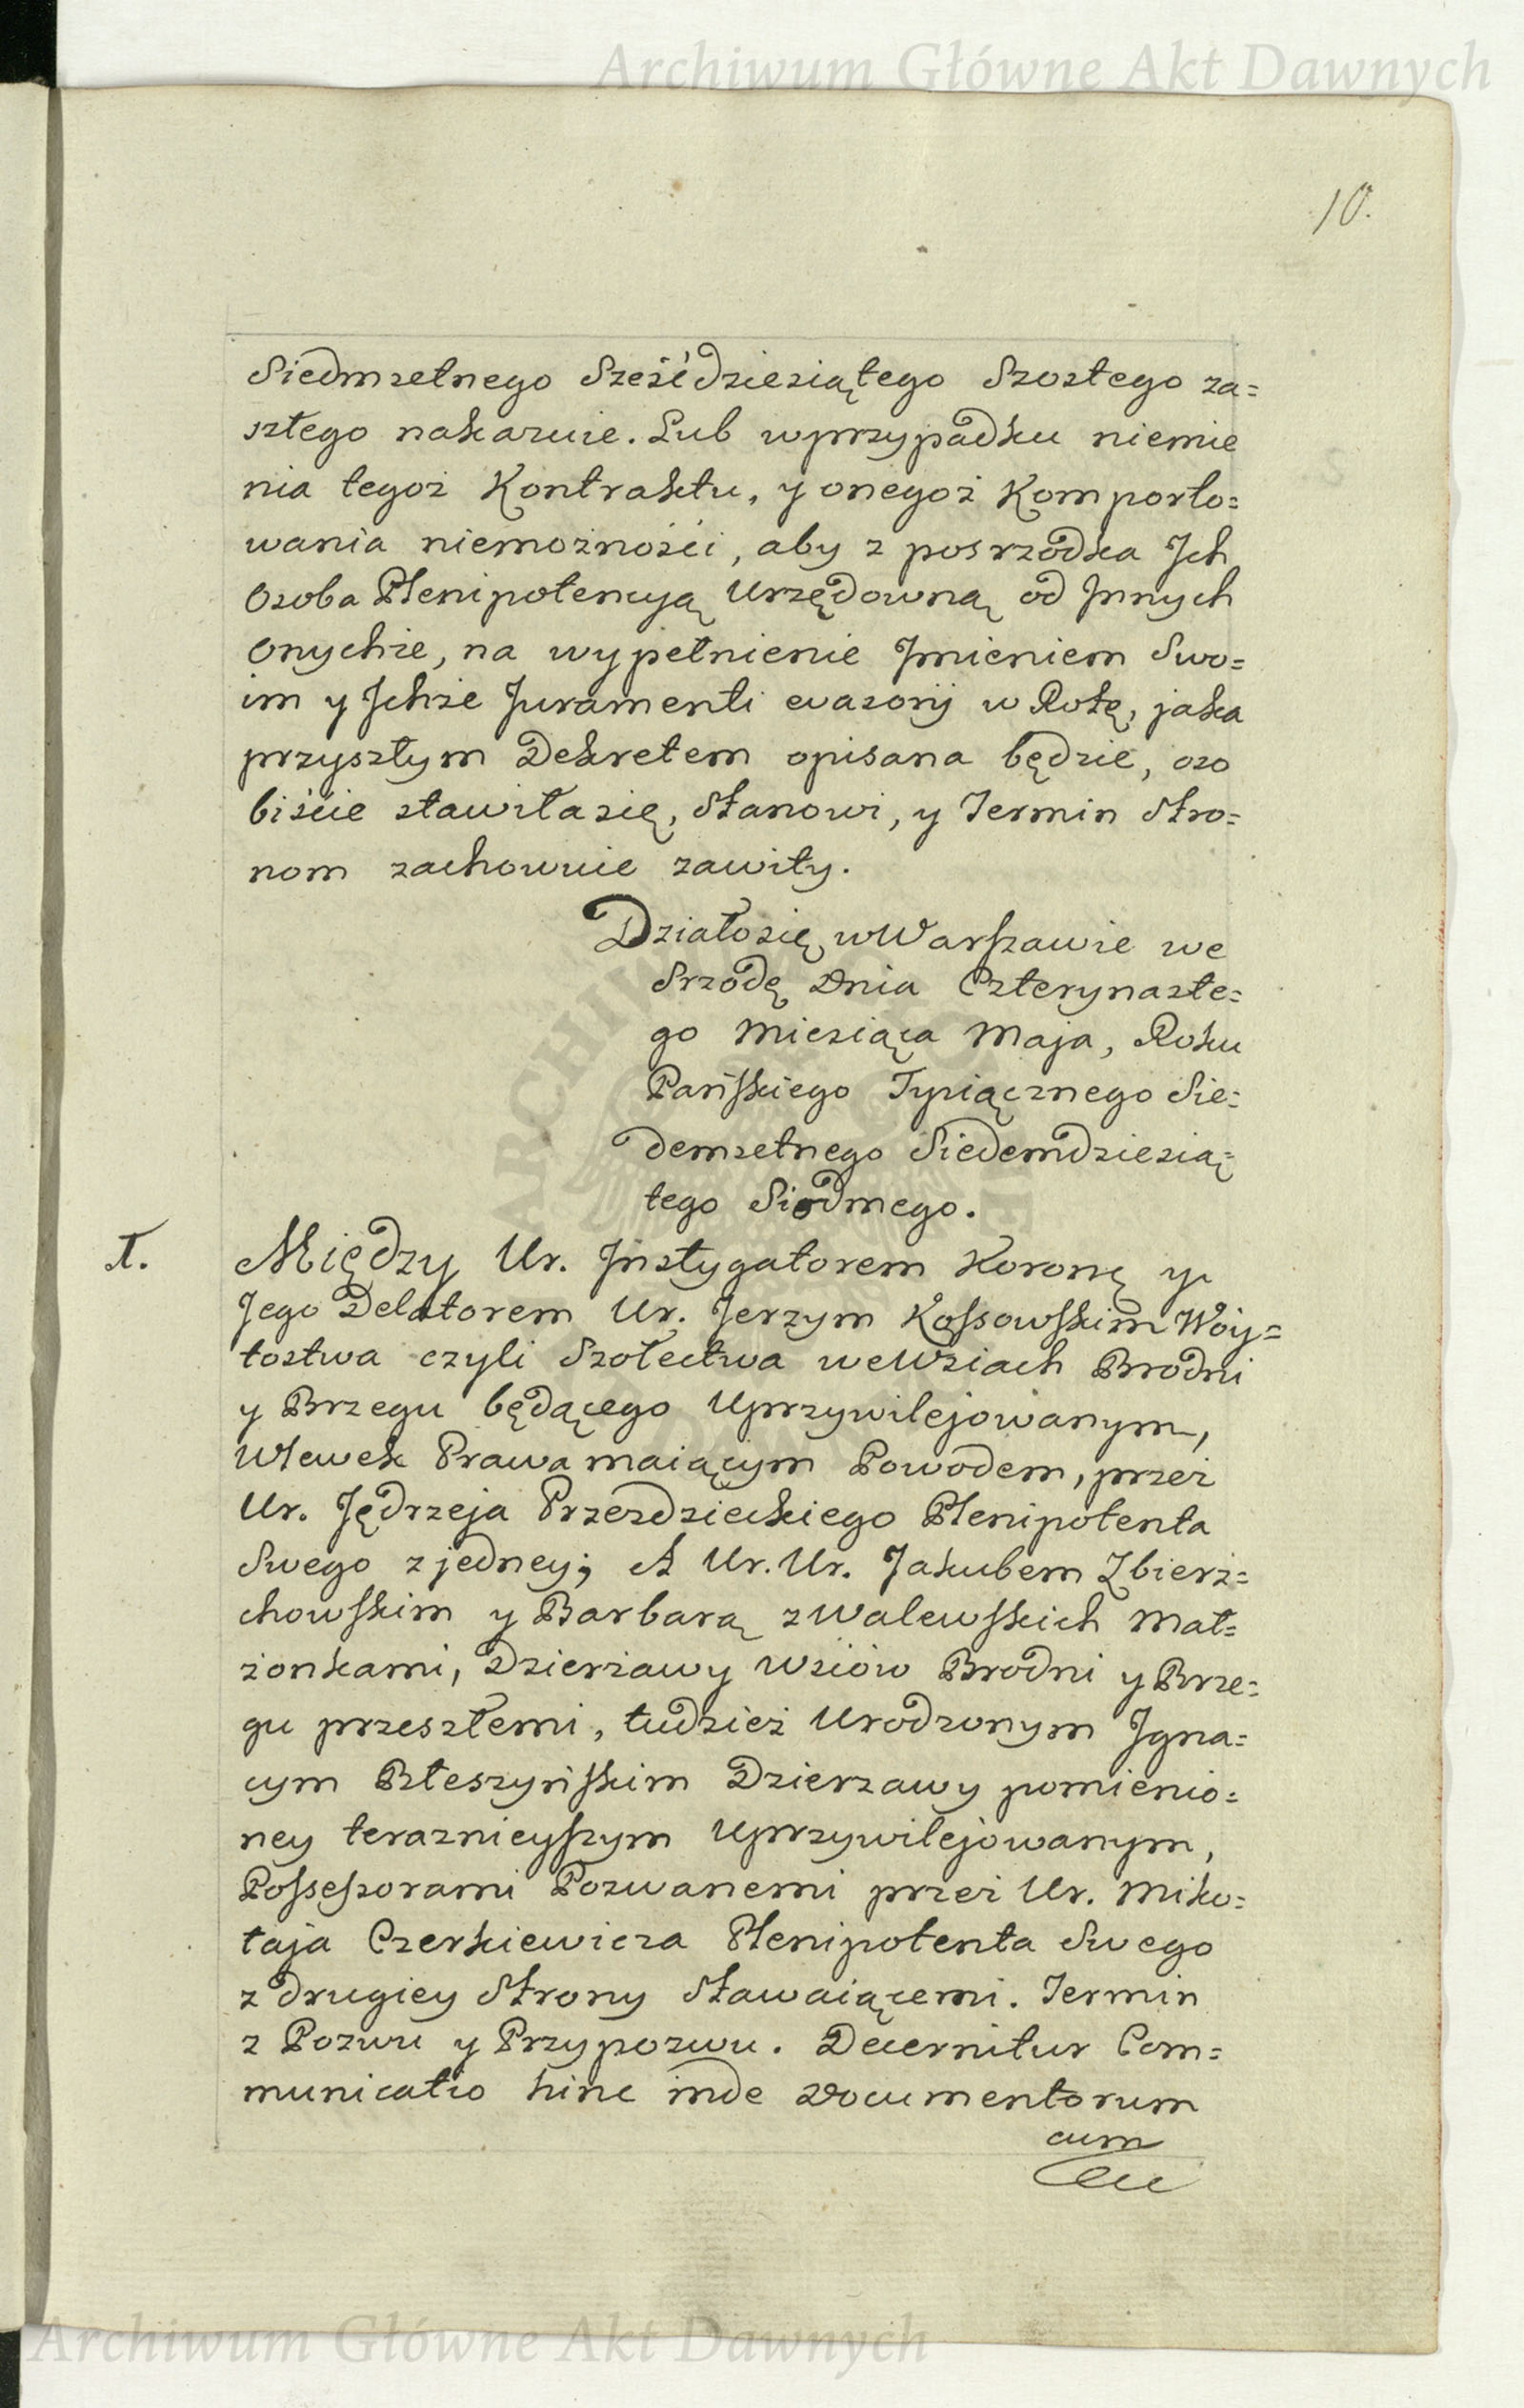 Archiwum Główne Akt Dawnych
10.
Siedmsetnego Sześćdziesiątego Szostego za=
szłego nakazuie. Lub wprzypadku niemie
nia tegoż Kontraktu, y onegoż Komporto=
wania niemożności, aby z posrzodka Jch
Osoba Plenipotencyą Urzędowną od Jnnych
Onychże, na wypełnienie Jmieniem Swo=
im y Jchże Juramenti evasorij w Rotę, jaka
przyszłym Dekretem opisana będzie, oso
biście stawiłasię, Stanowi, y Termin Stro=
nom zachowuie zawity.
Działosię wWarszawie we
Srzodę Dnia Czterynaste=
go Miesiąca Maja, Roku
Pańskiego Tysiącznego Sie=
demsetnego Siedemdziesią=
tego Siodmego.
T. Między Ur. Jnstygatorem Koronę y
Jego Delatorem Ur. Jerzym Kossowskim Wóy=
tostwa czyli Szołectwa weWsiach Brodni
y Brzegu będącego Uprzywilejowanym,
Wlewek Prawa maiącym Powodem, przez
Ur. Jędrzeja Przezdzieckiego Plenipotenta
Swego z jedney; A Ur. Ur. Jakubem Zbierz=
chowskim y Barbarą z Walewskich Mał=
żonkami, Dzierżawy Wsiów Brodni y Brze=
gu przeszłemi, tudzież Urodzonym Jgna=
cym Błeszyńskim Dzierzawy pomienio=
ney teraznieyszym Uprzywilejowanym,
Possessorami Pozwanemi przez Ur. Miko=
łaja Czerkiewicza Plenipotenta Swego
z drugiey Strony Stawaiącemi. Termin
z Pozwu y Przypozwu. Decernitur Com=
municatio hinc inde Documentorum
cum
Archiwum Główne Akt Dawnych